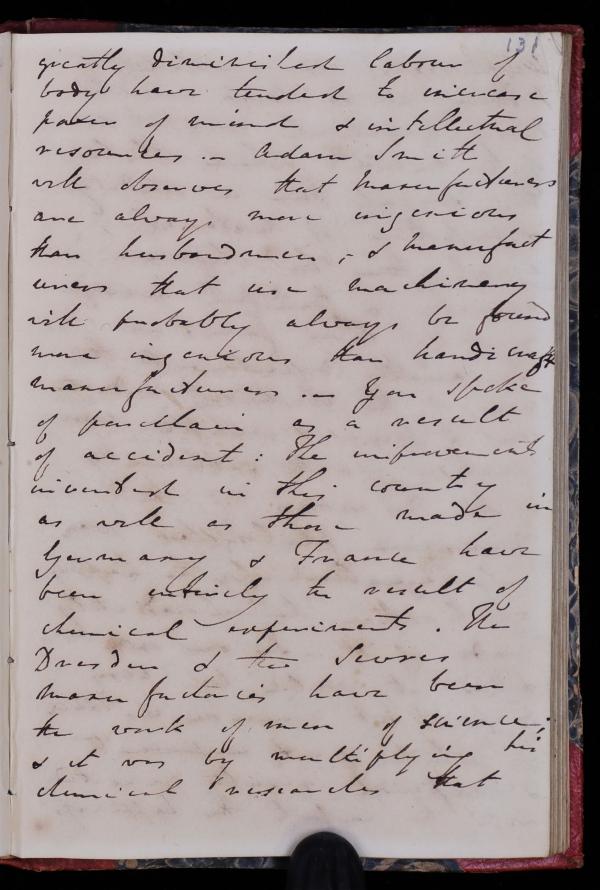 131
greatly diminished labour of
body have tended to increase
power of mind & intellectual
resources. - Adam Smith
well observes that manufacturers
are always more ingenious
than husbandmen; & manufact
urers that use machinery
will probably always be found
more ingenious than handicraft
manufacturers. - You spoke
of porcelain as a result
of accident: The improvements
invented in this country
as well as those made in
Germany & France have
been entirely the result of
chemical experiments. The
Dresden & the Sevres
manufactories have been
the work of men of science;
& it was by multiplying his
chemical researches that